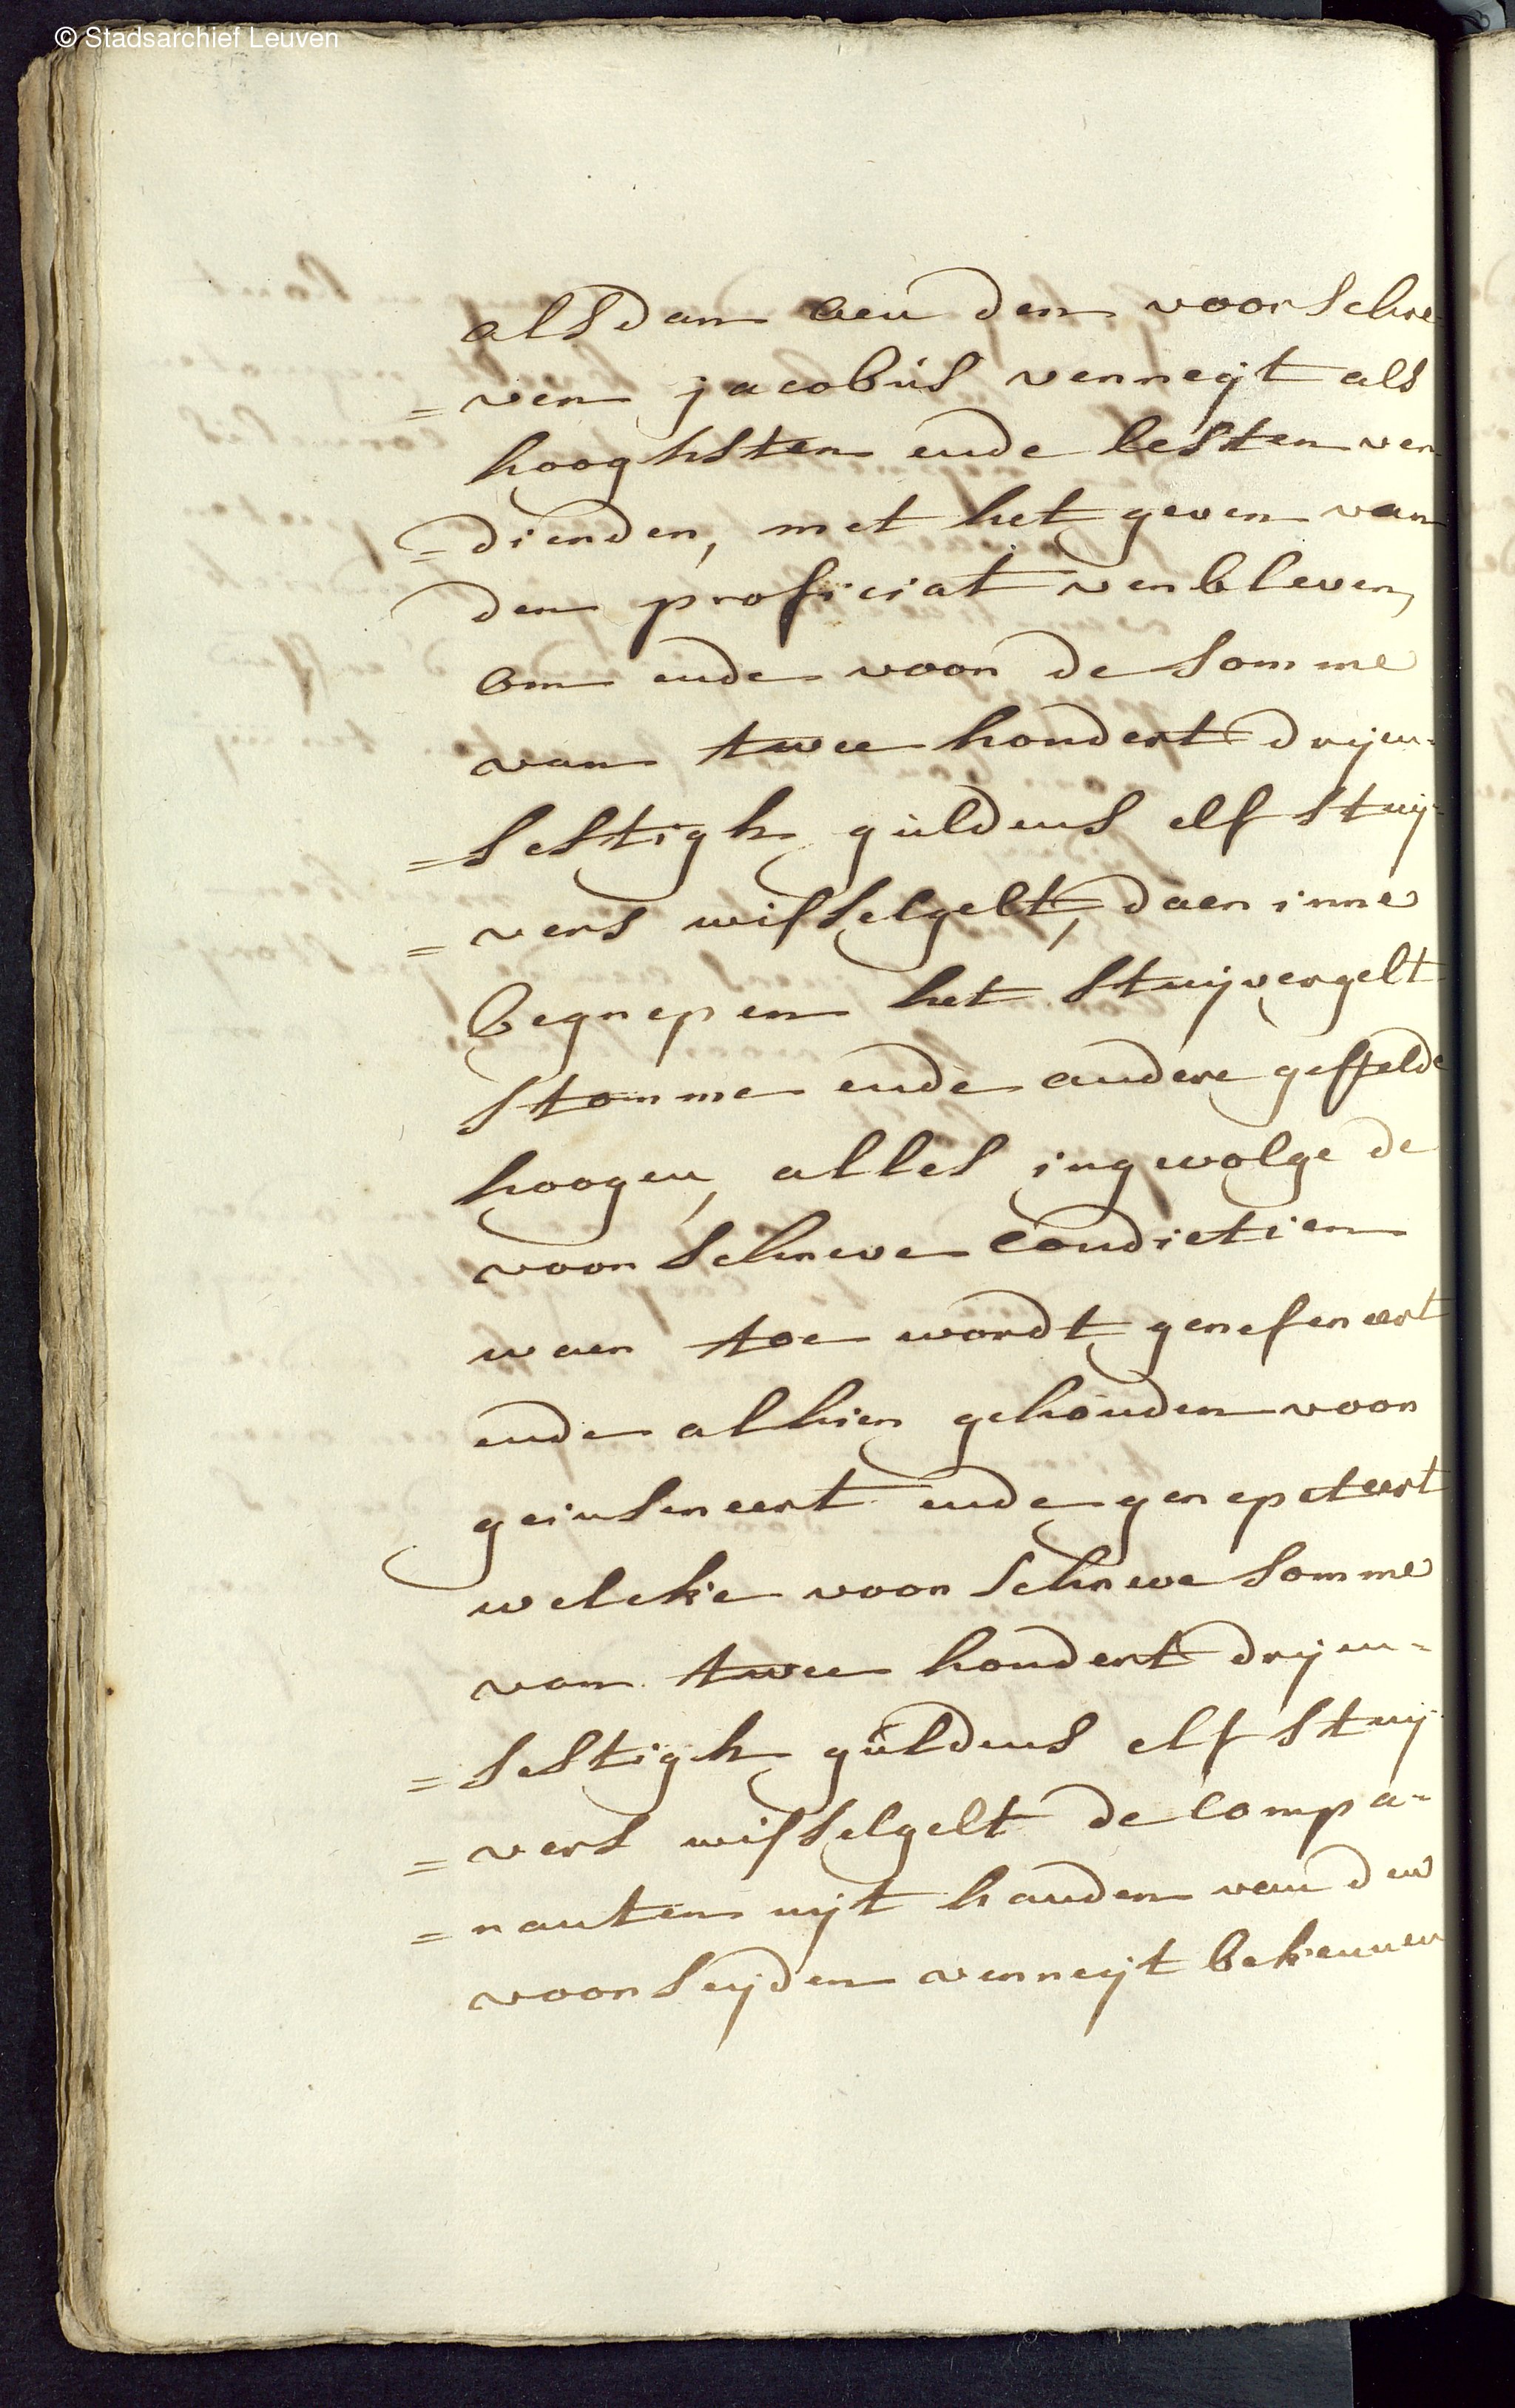 © Stadsarchief Leuven
alsdan aen den voorschre-
=ven jacobus verreijt als
hooghsten ende lesten ver
=dierden, met het geven van
den proficiat verbleven,
om ende voor de somme
van twee hondert drijen-
=sestigh guldens elf stuij-
=vers wisselgelt, daer inne
begrepen het stuijvergelt
stomme ende andere gestelde
hoogen, alles ingevolge de
voorschreve condietien
waer toe wordt gerefereert
ende alhier gehouden voor
geinsereert ende gerepeteert
welcke voorschreve somme
van twee hondert drijen-
=sestigh guldens elf stuij-
=vers wisselgelt de compa-
=ranten uijt handen van den
voorseijden verreijt bekennen